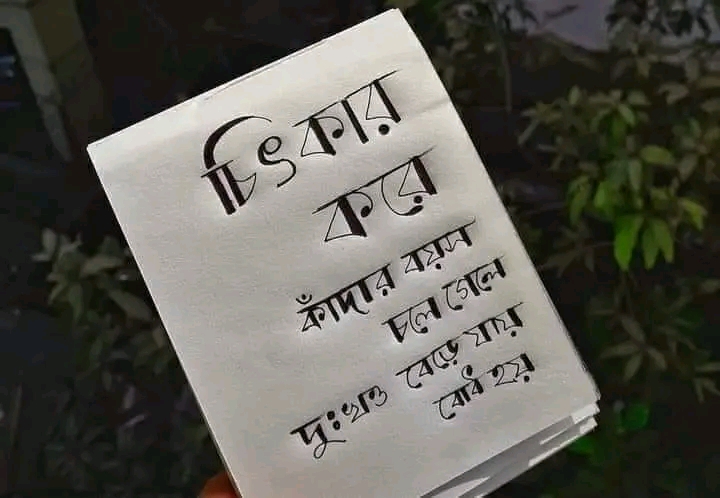 চিৎকার
করে
কাঁদার বয়স
চলে গেলে
দু:খও বেড়ে যায়
বোধ হয়